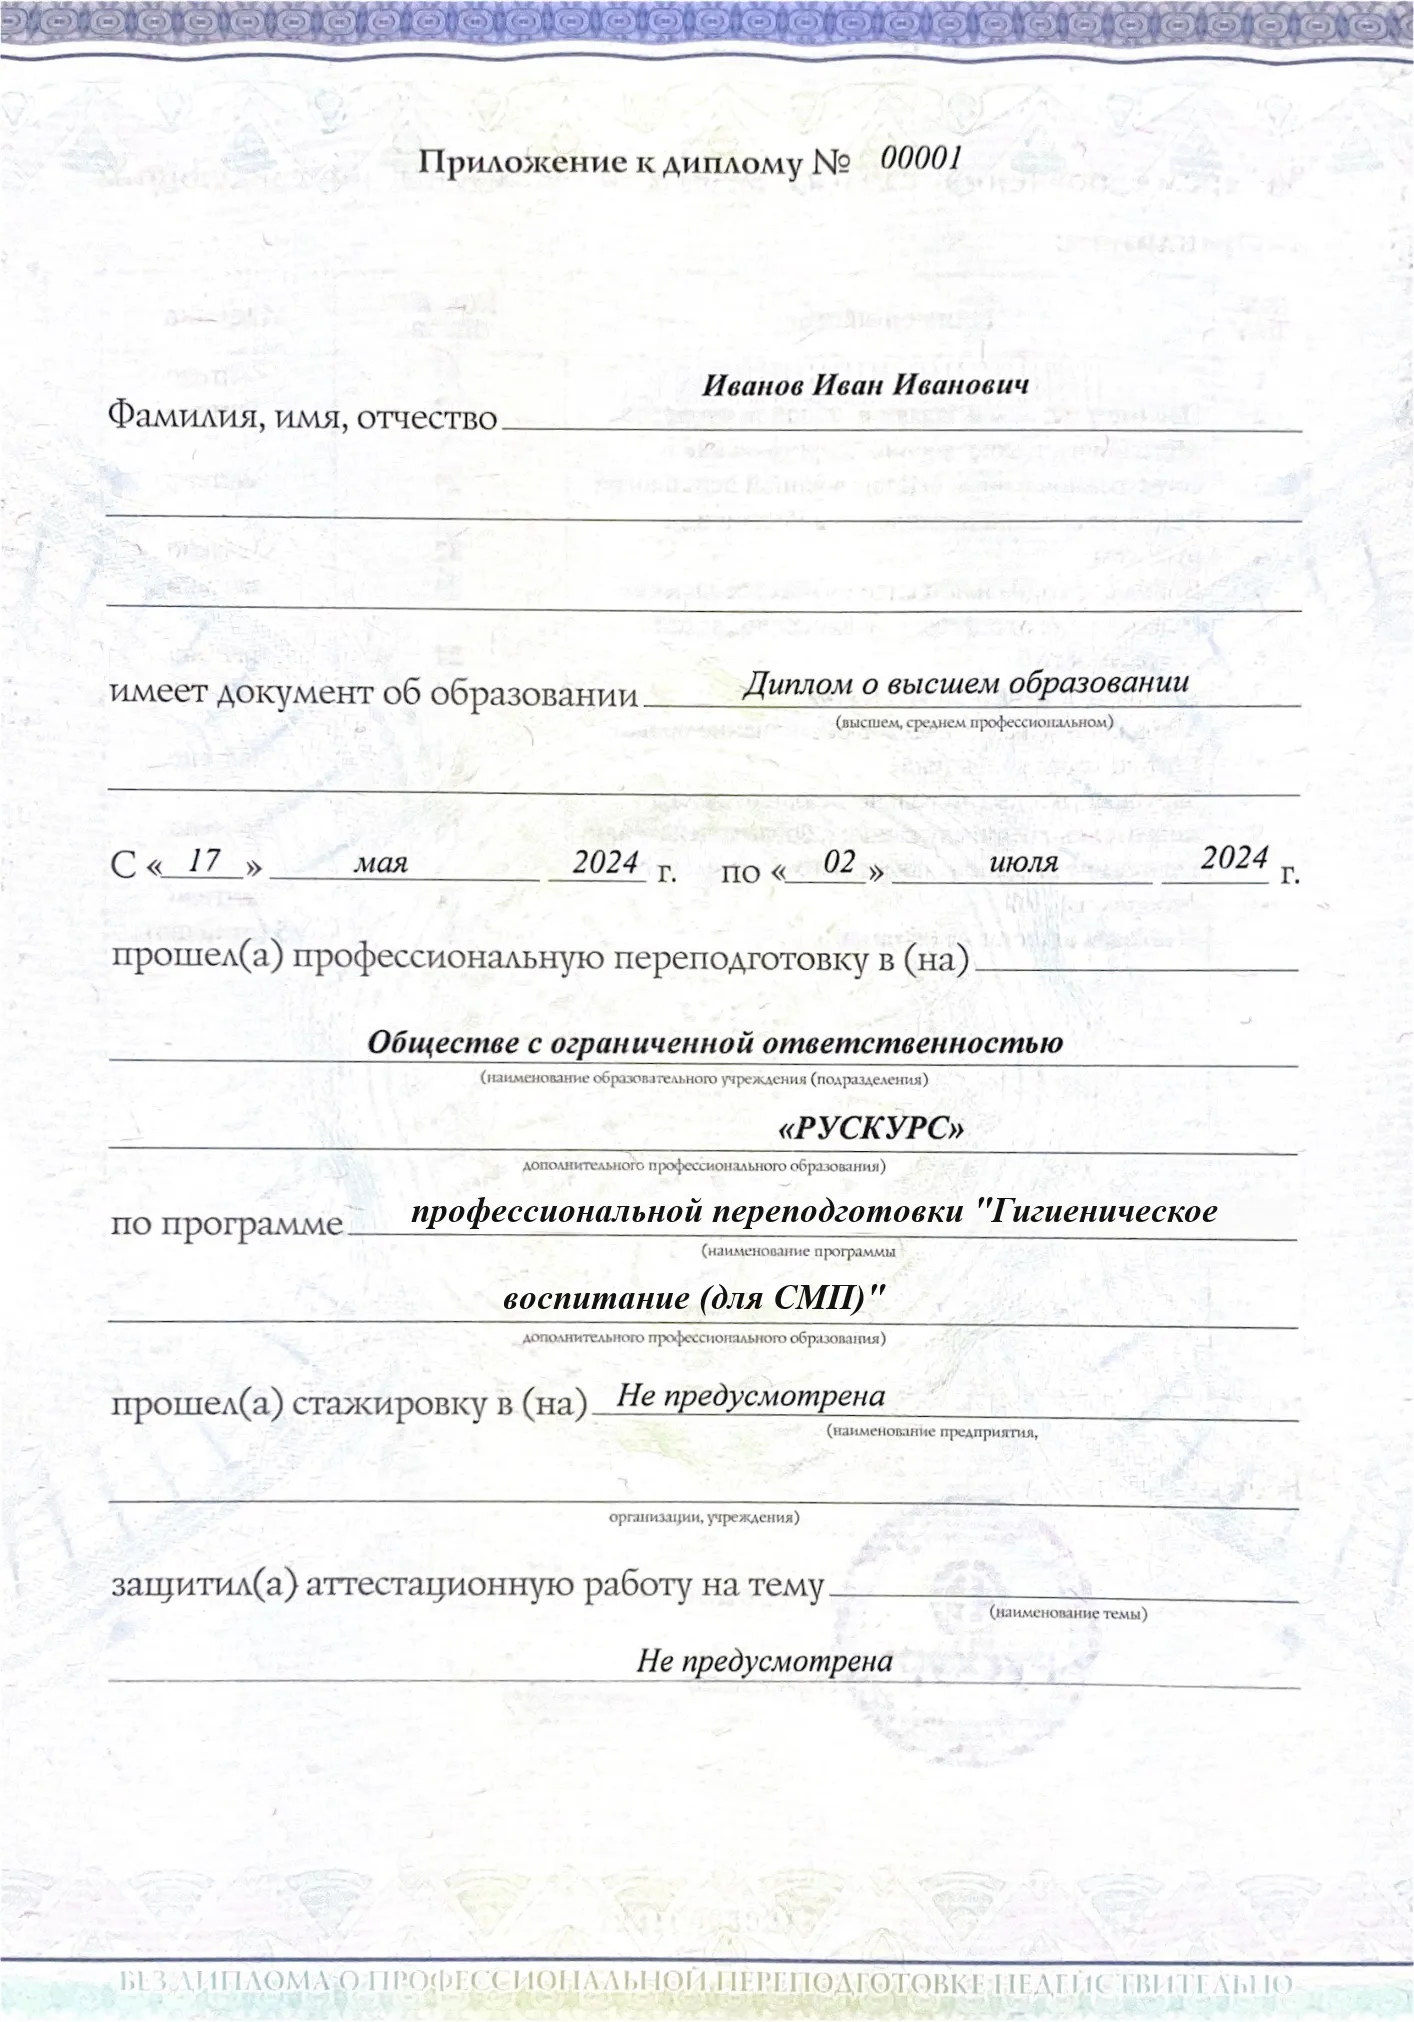 Приложение к диплому № 00001
Иванов Иван Иванович
Фамилия, имя, отчество
имеет документ об образовании Диплом о высшем образовании
(высшем, среднем профессиональном)
С « 17 » мая 2024 г. по « 02 » июля 2024 г.
прошел(а) профессиональную переподготовку в (на)
Обществе с ограниченной ответственностью
(наименование образовательного учреждения (подразделения)
«РУСКУРС»
дополнительного профессионального образования)
по программе профессиональной переподготовки "Гигиеническое
(наименование программы
воспитание (для СМП)"
дополнительного профессионального образования)
прошел(а) стажировку в (на) Не предусмотрена
(наименование предприятия,
организации, учреждения)
защитил(а) аттестационную работу на тему
(наименование темы)
Не предусмотрена
БЕЗ ДИПЛОМА О ПРОФЕССИОНАЛЬНОЙ ПЕРЕПОДГОТОВКЕ НЕДЕЙСТВИТЕЛЬНО